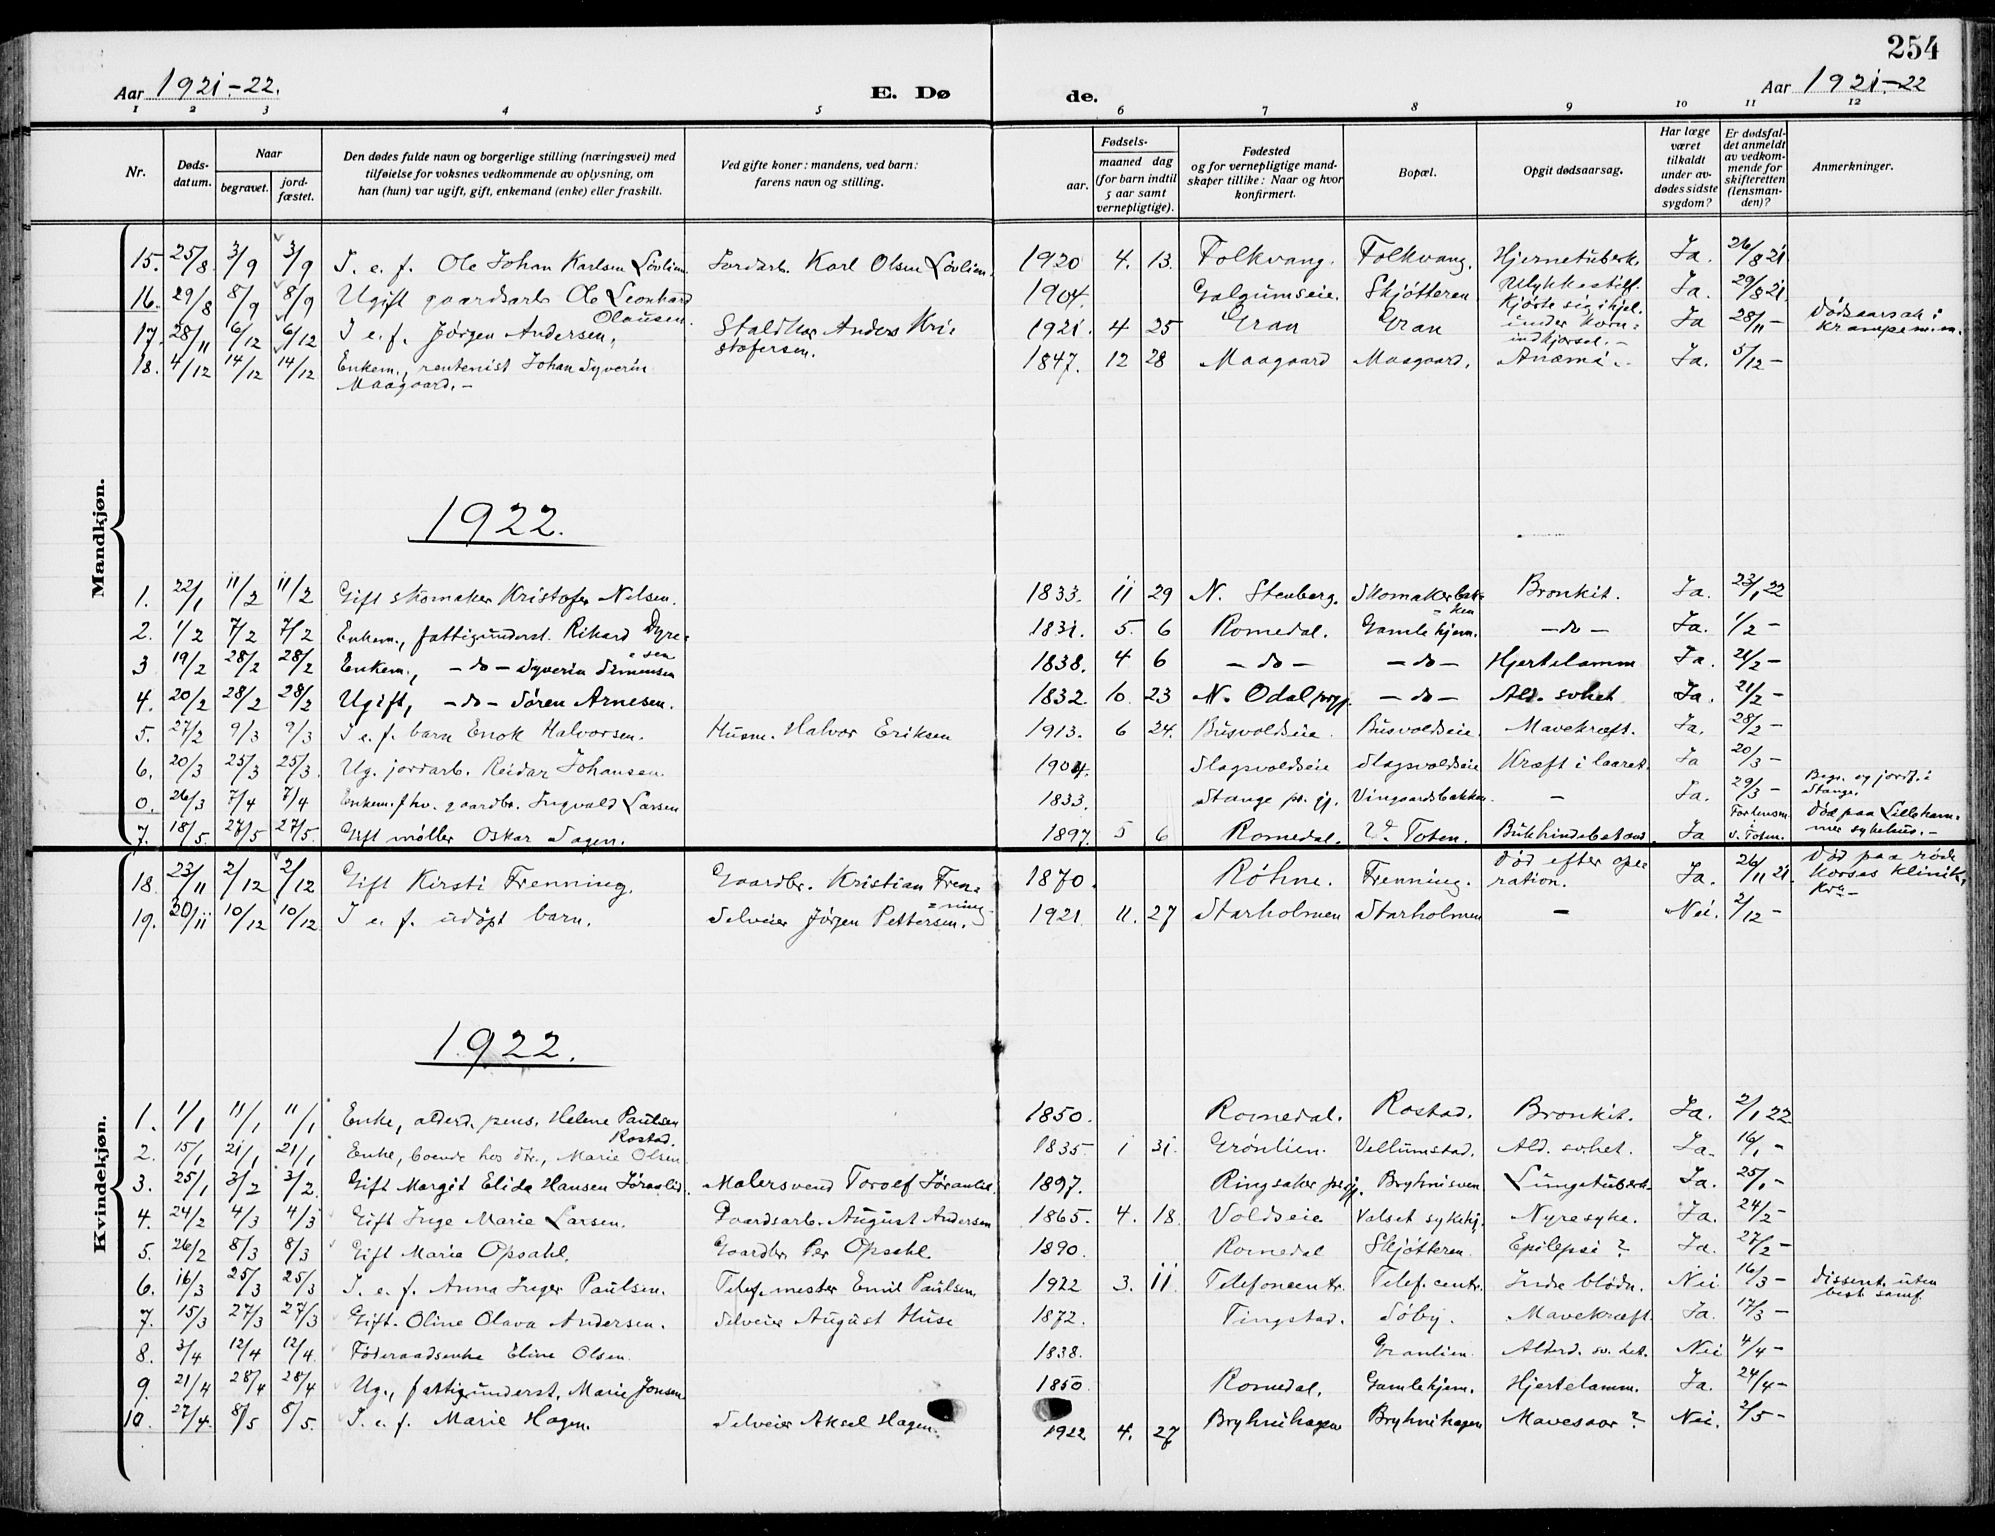 254
Aar 1921-22.
E. Dø
de.
Aar 1921-22
1 2 3 4 5 6 7 8 9 10 11 12
Nr.
Døds-
datum.
Naar
begravet.
jord-
fæstet.
Den dødes fulde navn og borgerlige stilling (næringsvei) med
tilføielse for voksnes vedkommende av oplysning, om
han (hun) var ugift, gift, enkemand (enke) eller fraskilt.
Ved gifte koner: mandens, ved barn:
farens navn og stilling.
Fødsels-
aar.
maaned dag
(for barn indtil
5 aar samt
vernepligtige).
Fødested
og for vernepligtige mand-
skaper tillike: Naar og hvor
konfirmert.
Bopæl.
Opgit dødsaarsag.
Har læge
været
tilkaldt
under av-
dødes sidste
sygdom?
Er dødsfal-
det anmeldt
av vedkom-
mende for
skifteretten
(lensman-
den)?
Anmerkninger.
Mandkjøn.
15. 25/8 3/9 3/9 I. e. f. Ole Johan Karlsen Lövlien. Jordarb. Karl Olsen Lövlien. 1920 4. 13. Folkvang. Folkvang. Hjernetuberk. Ja. 26/8 21.
16. 29/8 8/9 8/9 Ugift gaardsarb. Ole Leonhard 1904. Galgumseie. Skjötteren. Ulykkestilf. Ja. 29/8 21.
Olausen. kjörte sig ihjel
17. 28/11 6/12 6/12 I e. f. Jörgen Andersen, Anders Kri= 1921. 4 25 Gran Gran under korn= Ja 28/11 - Dödsaarsak:
stofersen. indkjørsel.-
18. 4/12 14/12 14/12 Enkem., rentenist Johan Syverin 1847. 12 28 Maagaard Maagaard. Anæmi.- Ja. 5/12 -
Maagaard.-
1922.
1. 22/1 11/2 11/2 Gift skomaker Kristofer Nilsen. 1833. 11 29 N. Stenberg. Skomakerbak= Bronkit. Ja. 23/1 22
ken
2. 1/2 7/2 7/2 Enkem., fattigunderst. Rikard Dyre= 1831. 5. 6 Romedal. Gamlehjem. -do- Ja. 1/2 -
sen
3 19/2 28/2 28/2 Enkem., -do- Syverin Simensen 1838. 4 6 -do- -do- Hjertelamm Ja. 21/2 -
4. 20/2 28/2 28/2 Ugift, -do- Sören Arnesen. 1832. 10 23 N. Odal prgj. -do- Ald. svhet Ja. 21/2 -
5. 27/2 9/3 9/3 I e. f. barn Enok Halvorsen. Husm. Halvor Eriksen 1913. 6 24. Busvoldseie. Busvoldseie. Mavekræft. Ja. 28/2 -
6. 20/3 25/3 25/3 Ug. jordarb. Reidar Johansen. 1904. Slagsvoldseie Slagsvoldseie Kræft i laaret. Ja 20/3 -
0. 26/3 7/4 7/4 Enkem. fhv. gaardbr. Ingvald Larsen 1833. Stange pr. gj. Vingaardsbakken. - Ja. 29/3 - Begr. og jordf. i
Stange.
7. 18/5 27/5 27/5. Gift møller Oskar Sagen. 1897. 5 6 Romedal. V. Toten. Bukhindebetænd. Ja v. Toten. Död paa Lilleham=
mer sykehus.-
18. 23/11 2/12 2/12 Gift Kirsti Frenning. Gaardbr. Kristian Fren= 1870. Röhne. Frenning. Död efter ope= Ja. 26/11 21. Död paa röde
ning. ration. Korses klinik,
Kra-
19. 20/11 10/12 10/12 I e. f. udöpt barn. Selveier Jörgen Pettersen. 1921 11. 27 Starholmen Starholmen - Nei. 2/12 -
1922.
Kvindekjøn.
1. 1/1 11/1 11/1 Enke, alderd. pens. Helene Paulsen 1850. Romedal. Rostad. Bronkit. Ja. 2/1 22
Rostad.
2. 15/1 21/1 21/1 Enke, boende hos dtr., Marie Olsen 1835 1 31. Grönlien. Vellumstad. Ald. svhet. Ja. 16/1 -
3. 25/1 3/2 3/2 Gift Margit Elida Hansen Malersvend Torolf 1897. Ringsaker prgj. Bryhnisven Lungetuberk. Ja. 25/1 -
4. 24/2 4/3 4/3 Gift Inge Marie Larsen. Gaardsarb. August Andersen 1865. 4. 18. Voldseie Valset sykehj. Nyresyke. Ja. 24/2 -
5. 26/2 8/3 8/3 Gift Marie Opsahl. Gaardbr Per Opsahl. 1890. Romedal Skjötteren. Epilepsi? Ja. 27/2 -
6. 16/3 25/3 25/3 I. e. f. Anna Inger Paulsen. Telef.mester Emil Paulsen 1922 3. 11. Telefoncentr. Telef. centr. Indre blödn. Nei 16/3 - Dissent. uten
best samf.
7. 15/3 27/3 27/3 Gift. Oline Olava Andersen. Selveier August Huse 1872. Tingstad. Söby. Mavekræft. Ja. 17/3 -
8. 3/4 12/4 12/4. Föderaadsenke Eline Olsen. 1838. Granlien. Alderd. sv. het. Nei 4/4 -
9. 21/4 28/4 28/4 Ug., fattigunderst. Marie Jonsen. 1850. Romedal. Gamlehjem. Hjertelamm. Ja. 24/4 -
10. 27/4. 8/5 8/5. I. e. f. Marie Hagen. Selveier Aksel Hagen. 1922 4. 27 Bryhnihagen Bryhnihagen Mavesaar? Nei. 2/5 -